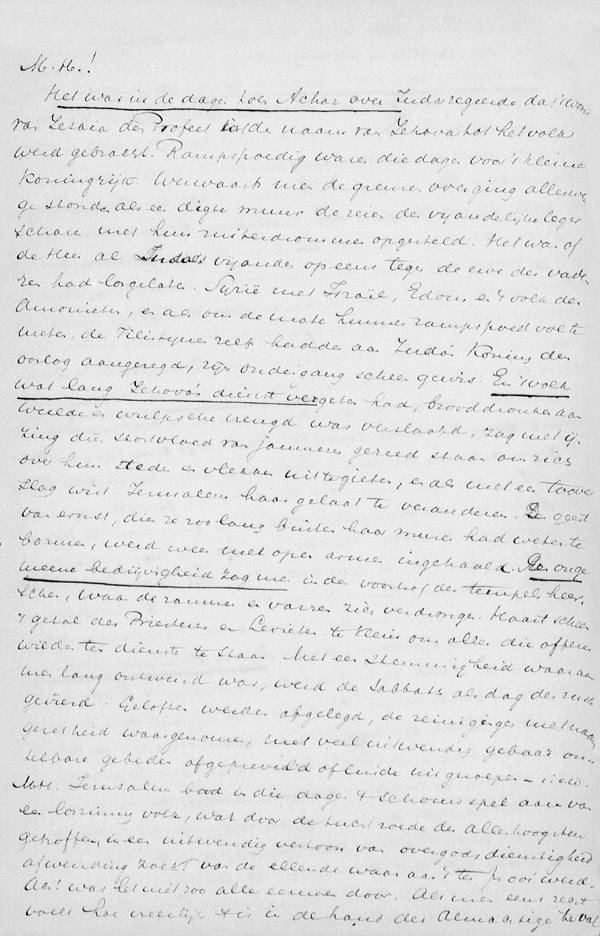 M. H.!
Het was in de dagen toen Achaz over Juda regeerde dat 't woord
van Jesaia den Profeet in de naam van Jehova tot het volk
werd gebracht. Rampspoedig waren die dagen voor 't kleine
Koningrijk. Werwaarts men de grenzen overging allerwe-
ge stonden als een digte muur de reien der vijandelijke leger
scharen met hun ruiterdrommen opgesteld. Het was of
de Heer al Juda's vijanden opeens tegen de erve der vade-
ren had losgelaten. Syrië met Israël, Edom en 't volk der
Ammonieten, en als om de mate hunner rampspoed vol te
meten, de Filistijnen zelf hadden aan Juda's Koning den
oorlog aangezegd, zijn ondergang scheen gewis. En 't volk
wat lang Jehova's dienst vergeten had, brooddronken aan
weelde en wulpsche vreugd was verslaafd, zag met ij-
zing die stortvloed van jammeren gereed staan om zich
over hun steden en vlekken uit te gieten, en als met een toover
slag wist Jerusalem haar gelaat te veranderen. De geest
van ernst, die ze zoo lang buiten haar muren had weten te
bannen, werd weer met open armen ingehaald. Een onge
meene bedrijvigheid zag men in de voorhof des tempels heer-
schen, waar de rammen en varren zich verdrongen. Haast scheen
't getal der Priesteren en Levieten te klein om allen die offeren
wilden ten dienste te staan. Met een stemmigheid waaraan
men lang ontwend was, werd de Sabbath als dag der ruste
gevierd. Geloften werden afgelegd, de reinigingen met naauw
gezetheid waargenomen, met veel uitwendig gebaar on-
telbare gebeden afgepreveld of luide uitgeroepen – in een
M.H. Jerusalem bood in die dagen 't schouwspel aan van
een loszinnig volk, wat door de tuchtroede des allerhoogsten
getroffen, in een uitwendig vertoon van overgodsdienstigheid
afwending zoekt van de ellende waaraan 't ten prooi werd.
Acht was het niet zoo alle eeuwen door. Als men eens
voelt hoe vreeselijk 't is in de hand des Almachtige te val